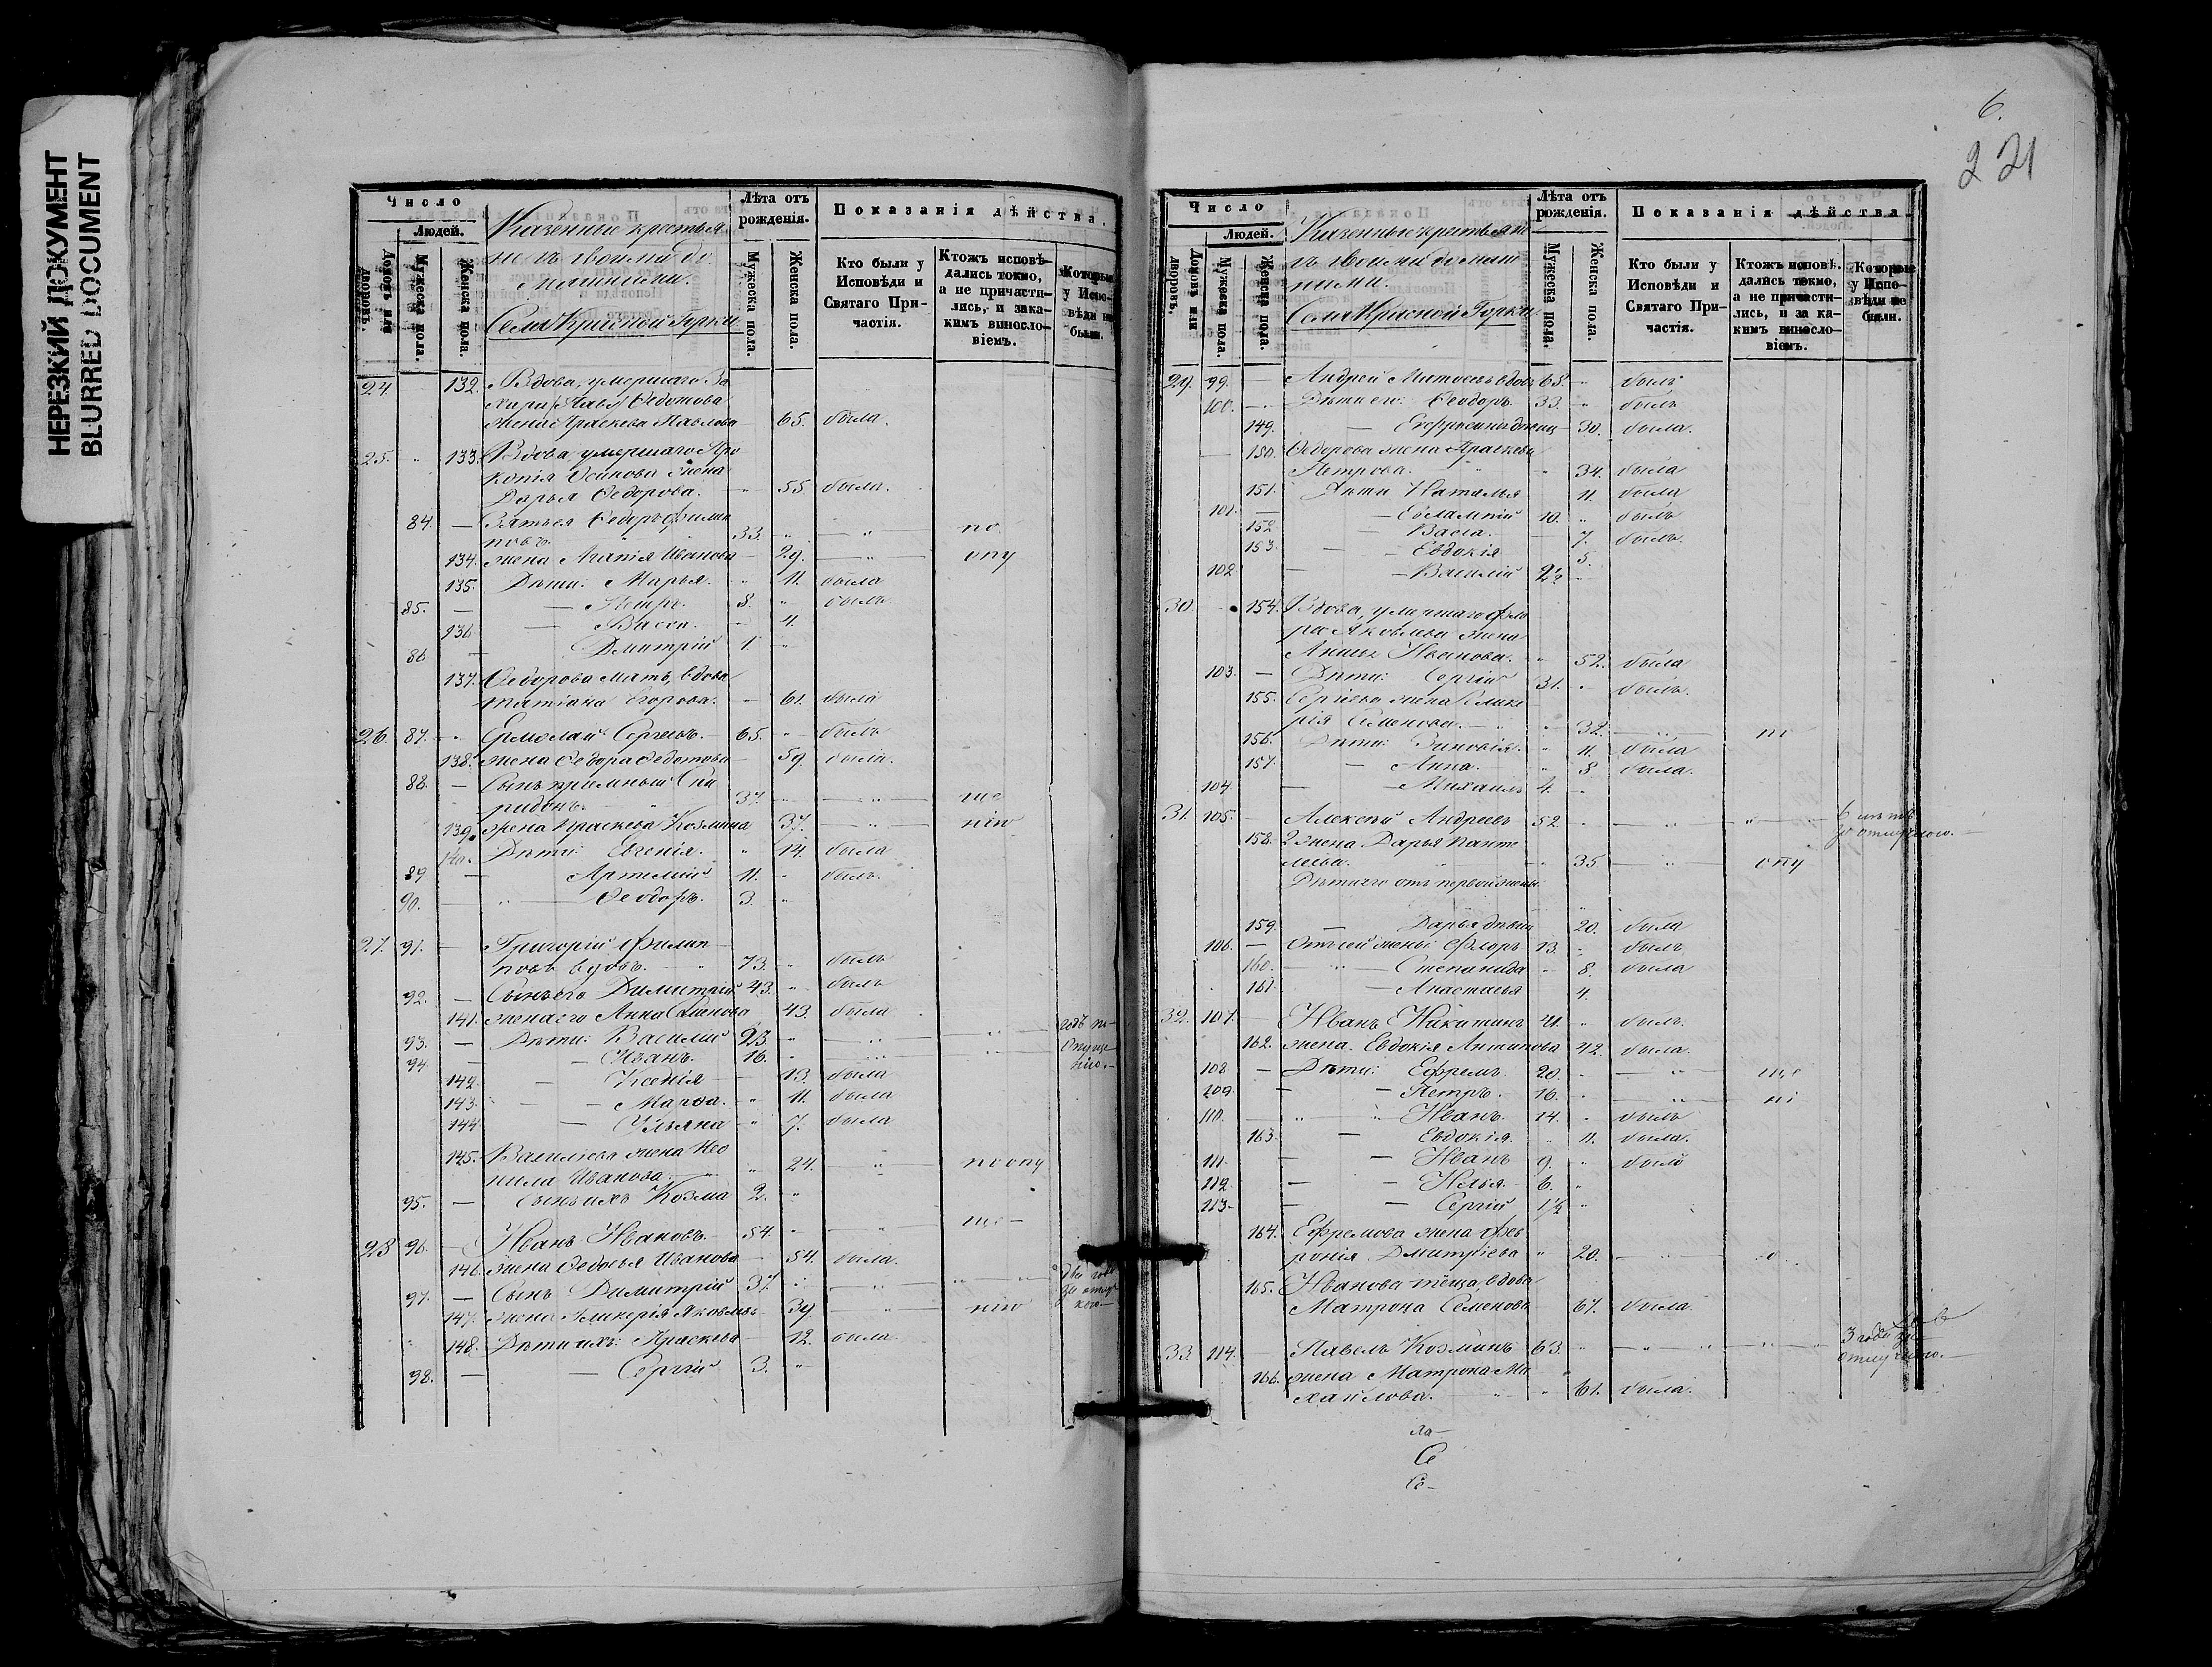 НЕРЕЗКИЙ ДОКУМЕНТ
BLURRED DOCUMENT
Число
Людей.
Домовъ или дворовъ.
Мужеска пола.
Женска пола.
Казенные крестья
не съ своими до
машними.
Села Красной Горки
Лѣта отъ рожденія.
Мужеска пола.
Женска пола.
Показанія дѣйства.
Кто были у Исповѣди и Святаго Причастія.
Ктожъ исповѣдались токмо, а не причастились, и закакимъ винословіемъ.
Которые у Исповѣди не были.
24. 132. Вдова, умершаго За
хара Федотова
жена Праскева Павлова 65. была.
25. 133. Вдова умершаго Про
копія Осипова жена
Дарья Федорова. 55 была.
84. Зять ея Федоръ Филип
повъ. 33. по
134. жена Агапія Иванова 29. опу
135. Дѣти: Марья. 11. была
85. Петръ. 8. былъ
136. Васса. 4.
86 Дмитрій 1
137. Федорова мать, вдова
Татіана Егорова. 61. была
26. 87. Ермолай Сергѣевъ. 65. былъ
138. жена Федора Федотова 59. была.
88. Сынъ пріемный Спи
ридонъ 37. ще
139. жена Праскева Козмина 37. нію
140. Дѣти: Евгенія. 14. была
89 Артемій 11. былъ.
90. Феодоръ. 3.
27. 91. Григорій Филип
повъ вдовъ. 73. былъ
92. Сынъ его Димитрій 43. былъ
141. жена его Анна Семенова 43. была
93. Дѣти: Василій 23. годъ по
94 Иванъ. 16. Опуще
нію.
142. Ксенія 13. была
143. Марфа. 11. была
144. Ульяна 7. была
145. Васильева жена Нео
нила Иванова. 24. по опу
95. Сынъ ихъ Козма 2.
28 96. Иванъ Ивановъ. 54. ще
146. жена Федосья Иванова 54. была.
97. Сынъ Димитрій 37.
147. жена Гликерія Яковлева 39. нію
148. Дѣти ихъ: Праскева 12. была
98. Сергій 3.
6.
221
Число
Людей.
Домовъ или дворовъ.
Мужеска пола.
Женска пола.
Казенные крестьяне
съ своими домаш
ними.
Села Красной Горки
Лѣта отъ рожденія.
Мужеска пола.
Женска пола.
Показанія дѣйства.
Кто были у Исповѣди и Святаго Причастія.
Ктожъ исповѣдались токмо, а не причастились, и за какимъ винословіемъ.
Которые у Исповѣди не были.
29. 99. Андрей Матвѣевъ вдовъ 68. былъ
100. Дѣти его: Феодоръ. 33. былъ
149. 30. была.
150. Федорова жена Праскева
Петрова. 34. была
151. Дѣти Наталья 11. была
101. Евлампій 10. былъ
152 Васса. 7. былъ
153. Евдокія 5.
102 Василій 2½
30. 154. Вдова, умершаго Фло
ра Яковлева жена
Ивановa. 52. была
103. Дѣти: Сергій 31. былъ.
155. Сергіева жена Глике
рія Семенова. 32. по
156. Дѣти: Зиновія. 11. была
157. Анна. 8 была.
104. Михаилъ 4.
31. 105. Алексѣй Андреевъ 52. 6 лѣтъ
за отлучкою.
158. 2 жена Дарья Панте
леева. 35. опу
Дѣти его отъ первой жены
159. Дарья дѣвица 20. была
106. Отъ сей жены: Флоръ 13. былъ
160. Степанида 8. была
161 Анастасья 4.
32. 107. Иванъ Никитинъ 41. былъ.
162. жена. Евдокія Антипова 42. была.
108 Дѣти: Ефремъ. 20. ще
109. Петръ. 16. ні
110. Иванъ. 14. былъ
163. Евдокія. 11. была.
111. Иванъ 9. былъ
112. Илья. 6.
113. Сергій 1½
164. Ефремова жена Фев
ронія Дмитріева 20. ю
165. Иванова тёща, вдова
Матрона Семенова 67. была.
33. 114. Павелъ Козминъ 63. 3 года за
отлучкою.
166. жена Матрона Ми
хайлова. 61. была.